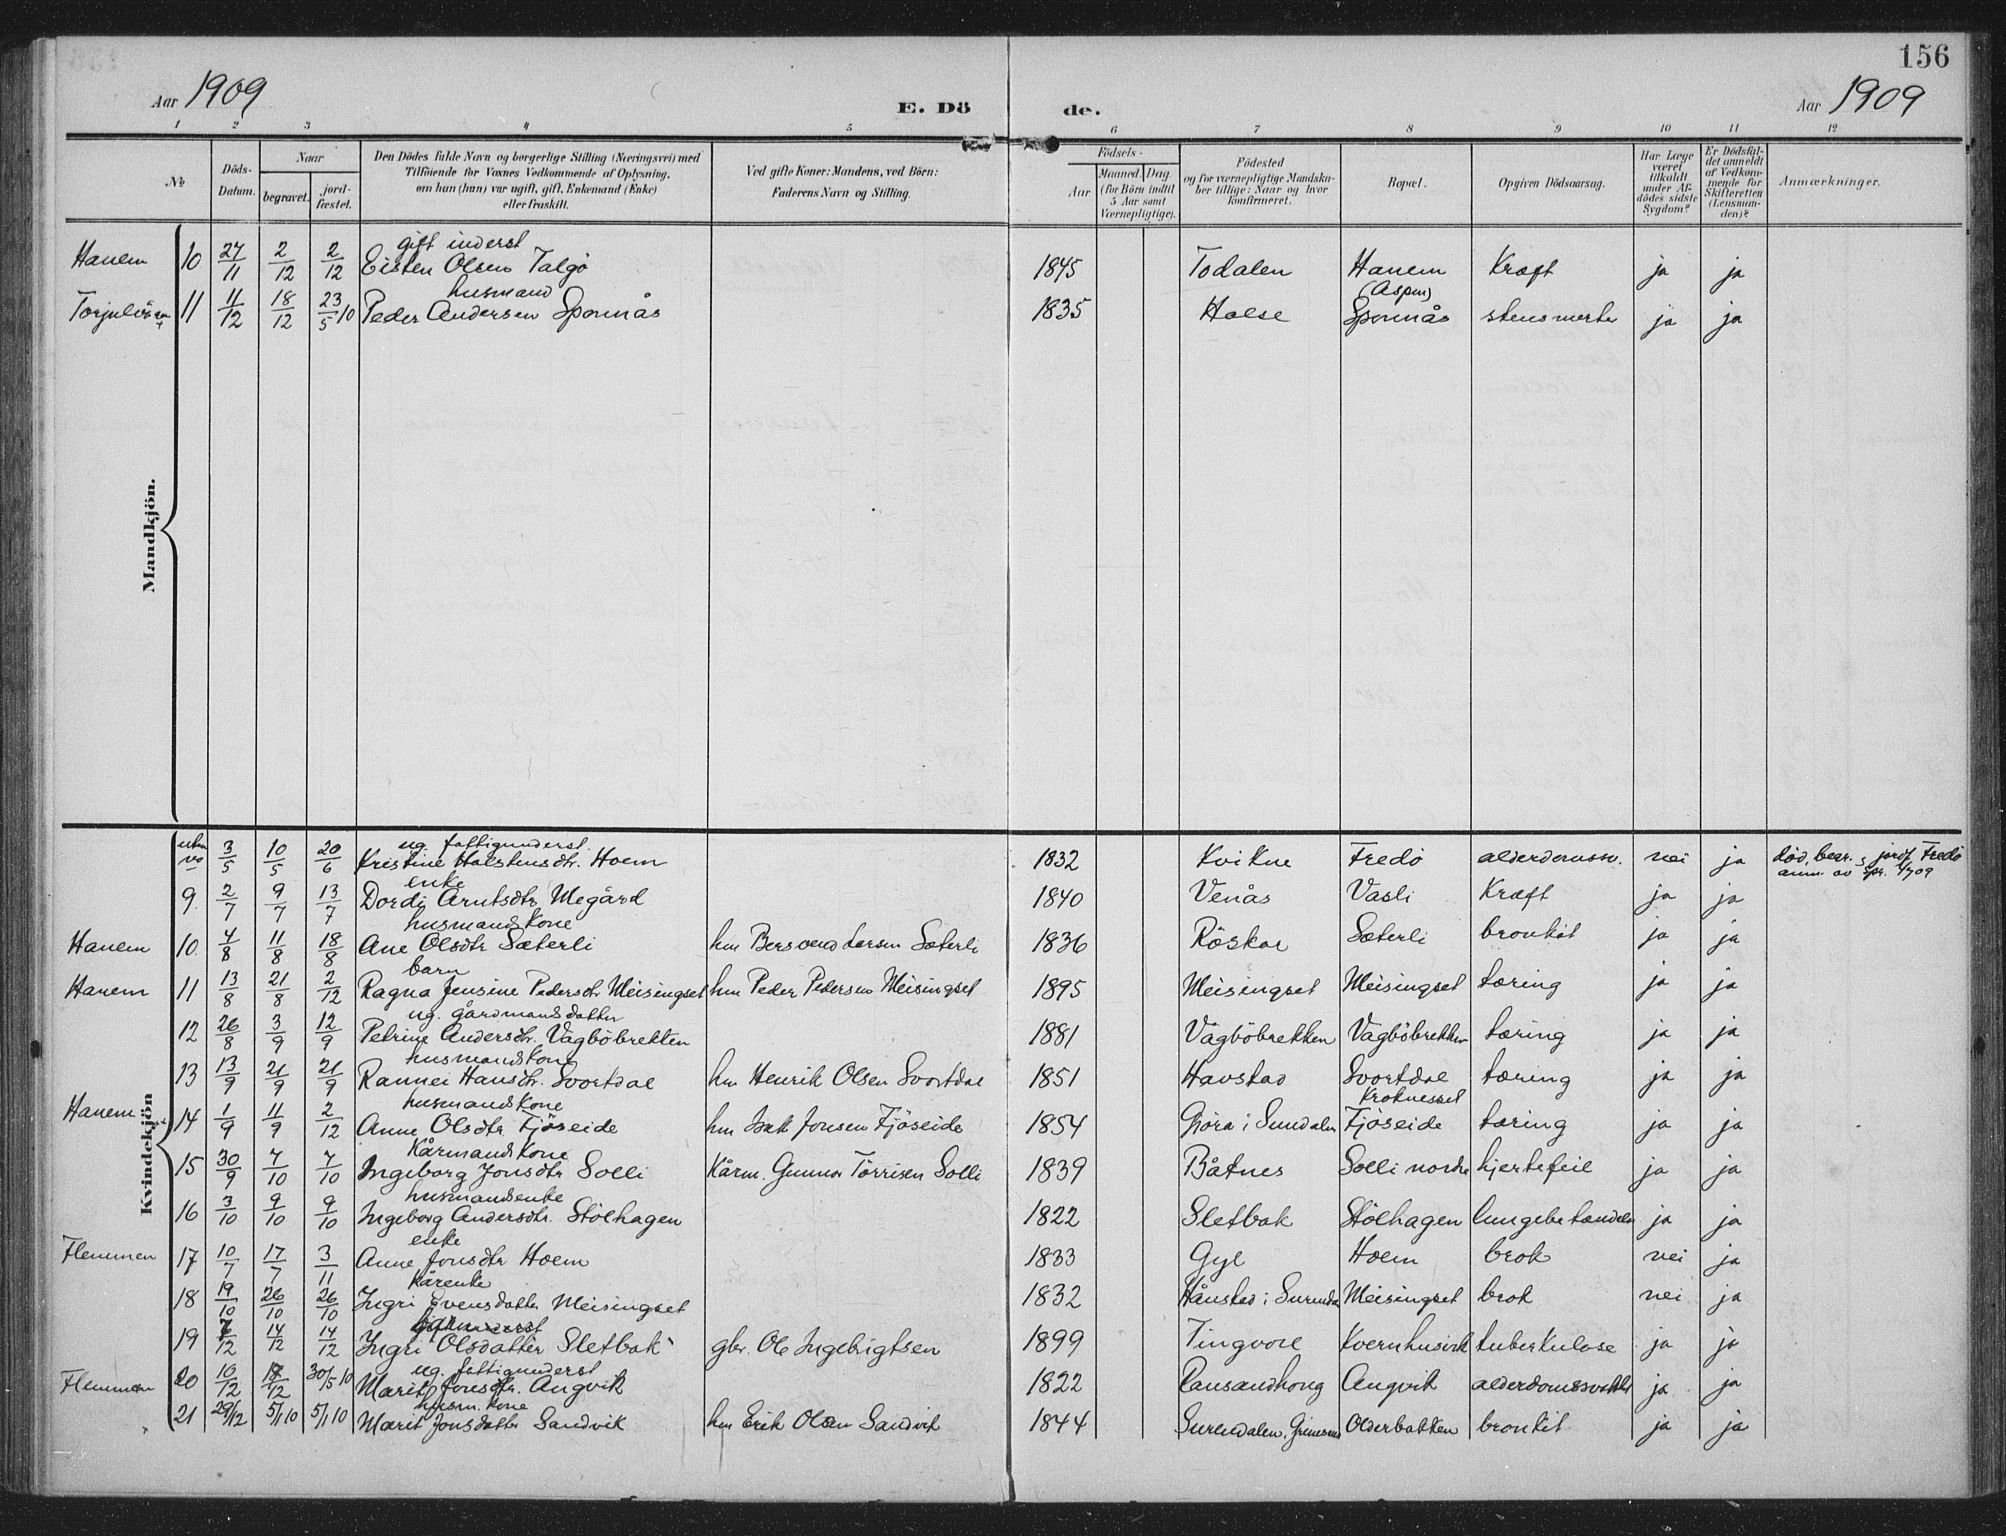 156
Aar 1909 E. Dö de. Aar 1909
1 2 3 4 5 6 7 8 9 10 11 12
No
Döds-Datum.
Naar begravet. jord-fæstet.
Den Dödes fulde Navn og borgerlige Stilling (Næringsvei) med Tilföiende for Voxnes Vedkommende af Oplysning, om han (hun) var ugift, gift, Enkemand (Enke) eller fraskilt.
Ved gifte Koner: Mandens, ved Börn: Faderens Navn og Stilling.
Födsels- Aar Maaned. Dag. (for Börn indtil 5 Aar samt Værnepligtige).
Födested og for værnepligtige Mandskaber tillige: Naar og hvor konfirmeret.
Bopæl.
Opgiven Dödsaarsag.
Har Læge været tilkaldt under Afdödes sidste Sygdom?
Er Dödsfaldet anmeldt af Vedkommende for Skifteretten (Lensmanden)?
Anmærkninger.
Mandkjön.
gift inderst
Hanem 10 27/11 2/12 2/12 Eisten Olsen Talgö 1845 Todalen Hanem Kræft ja ja
husmand (Aspen)
11 11/12 18/12 23/5 10 Peder Andersen Sponnås 1835 Halse Sponnås stensmerter ja ja
Kvindekjön
ug. fattigunderst.
3/5 10/5 20/6 Kristine Halstensdtr. Hoem 1832 Kvikne Fredö alderdomssv. nei ja död, begr. & jordf. Fredö
enke
9. 2/7 9/7 13/7 Dordi Arntsdtr. Megård 1840 Venås Vasli Kræft ja ja
husmandskone
Hanem 10. 4/8 11/8 18/8 Ane Olsdtr Sæterli hm Bersvend Larsen Sæterli 1836 Röskar Sæterli bronkit ja ja
barn
Hanem 11 13/8 21/8 2/12 Ragna Jensine Pedersdtr Meisingset hm Peder Pedersen Meisingset 1895 Meisingset Meisingset tæring ja ja
ug. gårdmandsdatter
12 26/8 3/9 12/9 Petrine Andersdtr. Vågböbrekken 1881 Vågböbrekken Vågböbrekken tæring ja ja
husmandskone
13 13/9 21/9 21/9 Rannei Hansdtr. Svortdal hm Henrik Olsen Svortdal 1851 Havstad Svortdal tæring ja ja
husmandskone Kroknesset
Hanem 14 1/9 11/9 2/12 Anne Olsdtr Fjöseide hm Isak Jonsen Fjöseide 1854 Gjöra i Sundalen Fjöseide tæring ja ja
Kårmandskone
15 30/9 7/10 7/10 Ingeborg Jonsdtr Solli Kårm. Gunnar Törrisen Solli 1839 Båtnes Solli nordre hjertefeil ja ja
husmandsenke
16 3/10 9/10 9/10 Ingeborg Andersdtr. Stölhagen 1822 Sletbak Stölhagen lungebetændelse ja ja
enke
Flemmen 17 10/7 17/7 3/11 Anne Jonsdtr Hoem 1833 Gyl Hoem brok nei ja
Kårenke
18 19/10 26/10 26/10 Ingri Evensdatter Meisingset 1832 Hånstad i Surendal Meisingset brok nei ja
barn
19 7/12 14/12 14/12 Ingri Olsdatter Sletbak gbr. Ole Ingebrigtsen 1899 Tingvoll Kvernhusvik tuberkulose ja ja
ug. fattigunderst
Flemmen 20 10/12 17/12 30/5 10 Marit Jonsdtr. Angvik 1822 Ransandhaug Angvik alderdomssvakhet ja ja
husm. kone
21 29/12 5/1 10 5/1 10 Marit Jonsdatter Sandvik hm Erik Olsen Sandvik 1844 Surendalen, Olderbakken bronkit ja ja